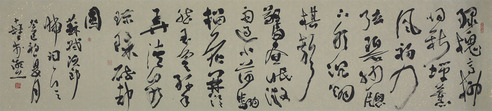 綠槐高柳
咽新蟬薰
風初入
弦碧紗窗
下水沉煙
棋聲
驚晝眠微
雨過小荷翻
榴花開欲
然玉盆纖手
弄清泉
瓊珠碎却
圓
蘇軾阮郎
歸初夏